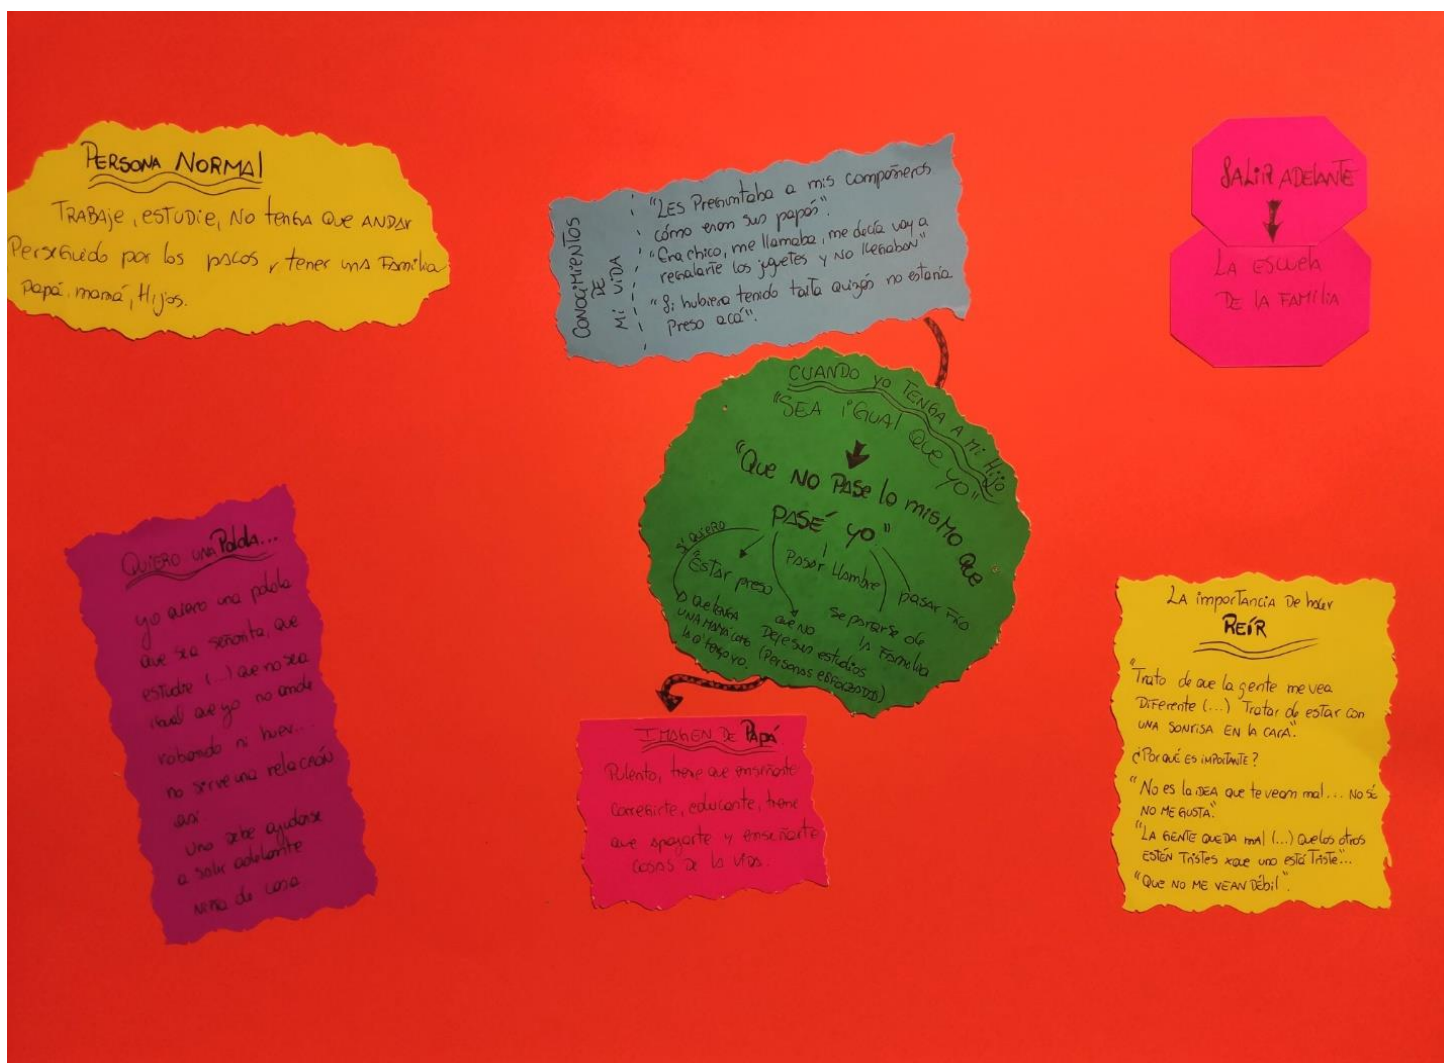 PERSONA NORMAL
TRABAJE, ESTUDIE, NO TENGA QUE ANDAR
PERSEGUIDO por los pacos, tener una Familia
Papá, mamá, Hijos.
CONOCIMIENTOS
DE
MI VIDA
"LES PREGUNTABA a mis compañeros
cómo eran sus papás".
"Era chico, me llamaba, me decía voy a
regalarte los juguetes y NO llegaban"
"Si hubiera tenido taita quizás no estaría
Preso acá".
SALIR ADELANTE
LA ESCUELA
DE LA FAMILIA
CUANDO YO TENGA A MI HIJO
"SEA IGUAL QUE YO"
"QUE NO PASE lo MISMO QUE
PASÉ YO"
SÍ QUIERO
"ESTAR PRESO
PASAR HAMBRE
PASAR FRÍO
QUE TENGA
UNA MAMÁ COMO
LA Q' TENGO YO.
QUE NO
DEJE SUS ESTUDIOS
(PERSONAS ESFORZADAS)
SEPARARSE DE
LA FAMILIA
QUIERO UNA Polola...
yo quiero una polola
que sea señorita, que
estudie (...) que no sea
igual que yo no ande
robando ni huev...
no sirve una relación
así
Uno debe ayudarse
a salir adelante
de casa
IMAGEN DE Papá
Pulento, tiene que enseñarte
corregirte, educarte, tiene
que apoyarte y enseñarte
cosas de la vida.
LA importancia De hacer
REÍR
"Trato de que la gente me vea
Diferente (...) Tratar de estar con
UNA SONRISA EN LA CARA".
¿POR QUÉ ES IMPORTANTE?
"No es la IDEA que te vean mal... NO SÉ
NO ME GUSTA".
"LA GENTE QUEDA mal (...) Que los otros
ESTÉN TRISTES xque uno está Triste...
"QUE NO ME VEAN DÉbil".